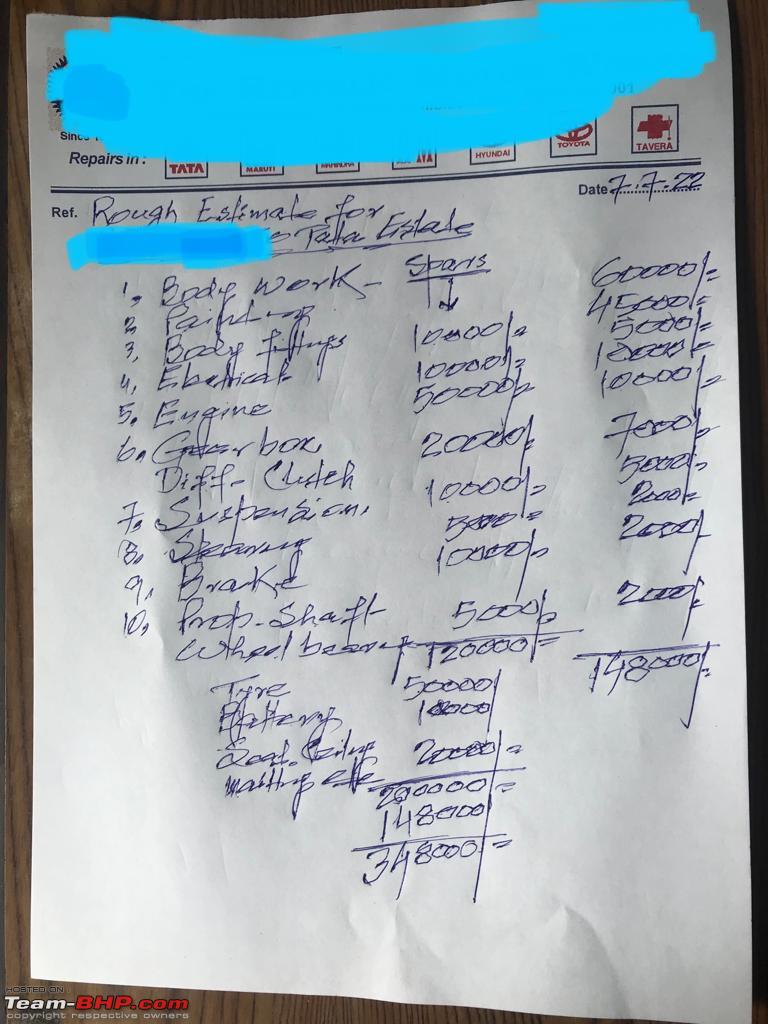 001
Since 1
Repairs in : TATA MARUTI MAHINDRA HYUNDAI TOYOTA TAVERA
Date 7.7.22
Ref. Rough Estimate for
Tata Estate
Spars
1, Body work - 60000/=
2, Painting 45000/=
3, Body fittings 10000/= 5000/=
4, Eletrical 10000/= 10000/=
5, Engine 50000/= 10000/=
6, Gear box
Diff - Clutch 20000/= 7000/=
7, Suspension, 10000/= 5000/=
8, Stearing 5000/= 2000/=
9, Brake 10000/= 2000/=
10, Prop-Shaft
Wheel bearing 5000/= 2000/=
120000/= 148000/=
Tyre 50000/
Battery 10000
Seat, Ceiling
matting etc 20000/=
200000/=
148000/
348000/=
HOSTED ON
Team-BHP.com
copyright respective owners